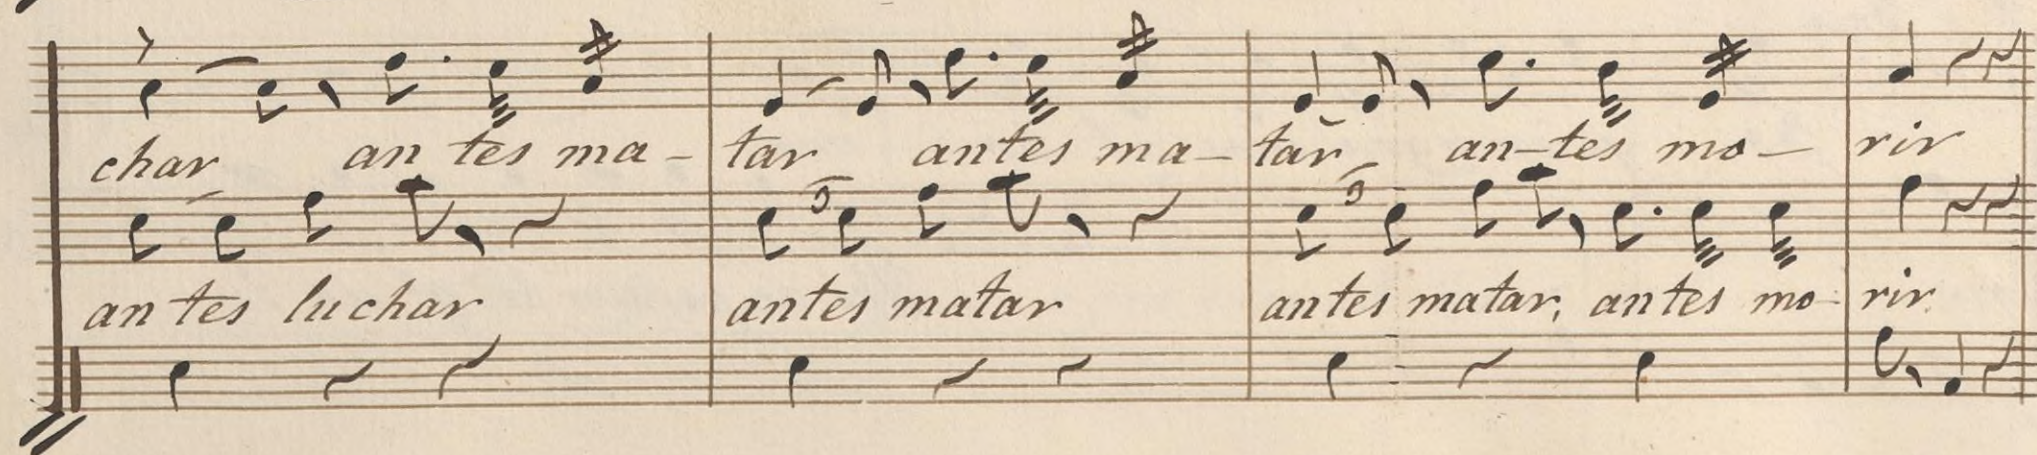 char an tes ma - tar antes ma - tar an - tes mo - rir
an tes luchar antes matar antes matar, antes mo - rir.